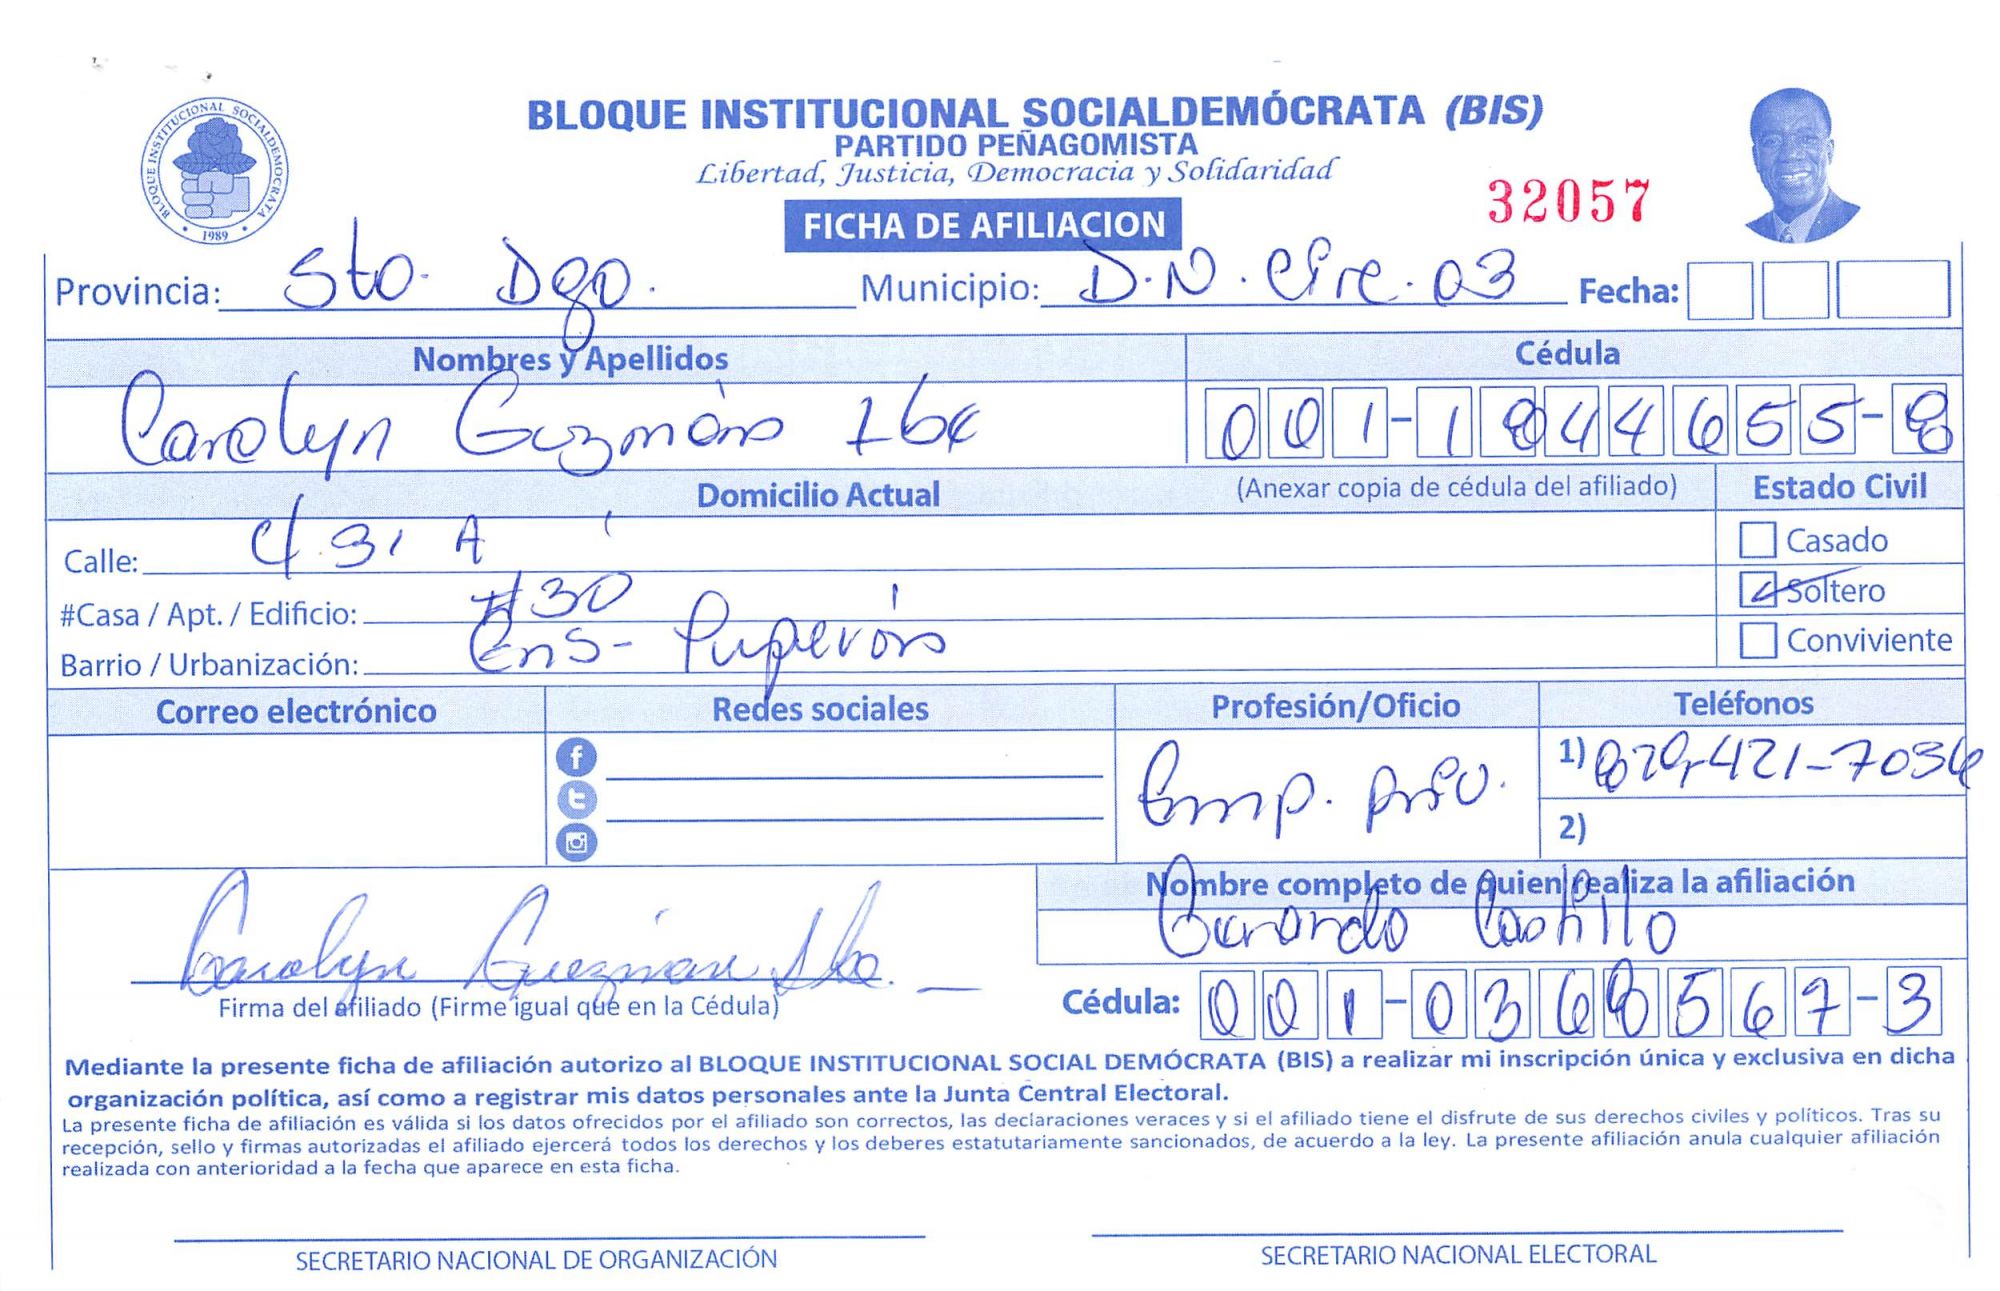 BLOQUE INSTITUCIONAL SOCIALDEMÓCRATA (BIS)
PARTIDO PEÑAGOMISTA
Libertad, Justicia, Democracia y Solidaridad
32057
FICHA DE AFILIACION
BLOQUE INSTITUCIONAL SOCIALDEMOCRATA
1989
Provincia: Sto. Dgo. Municipio: D.N. Circ. 03 Fecha:
Nombres y Apellidos Cédula
Carolyn Guzmán 001-1844655-8
Domicilio Actual (Anexar copia de cédula del afiliado) Estado Civil
Calle: C/ 31 A Casado
#Casa / Apt. / Edificio: #30 Soltero
Barrio / Urbanización: Ens- Conviviente
Correo electrónico Redes sociales Profesión/Oficio Teléfonos
Emp. priv. 1) 829-421-7036
2)
Nombre completo de quien realiza la afiliación
Castillo
Carolyn Guzman
Firma del afiliado (Firme igual que en la Cédula) Cédula: 001-0368567-3
Mediante la presente ficha de afiliación autorizo al BLOQUE INSTITUCIONAL SOCIAL DEMÓCRATA (BIS) a realizar mi inscripción única y exclusiva en dicha
organización política, así como a registrar mis datos personales ante la Junta Central Electoral.
La presente ficha de afiliación es válida si los datos ofrecidos por el afiliado son correctos, las declaraciones veraces y si el afiliado tiene el disfrute de sus derechos civiles y políticos. Tras su
recepción, sello y firmas autorizadas el afiliado ejercerá todos los derechos y los deberes estatutariamente sancionados, de acuerdo a la ley. La presente afiliación anula cualquier afiliación
realizada con anterioridad a la fecha que aparece en esta ficha.
SECRETARIO NACIONAL DE ORGANIZACIÓN SECRETARIO NACIONAL ELECTORAL